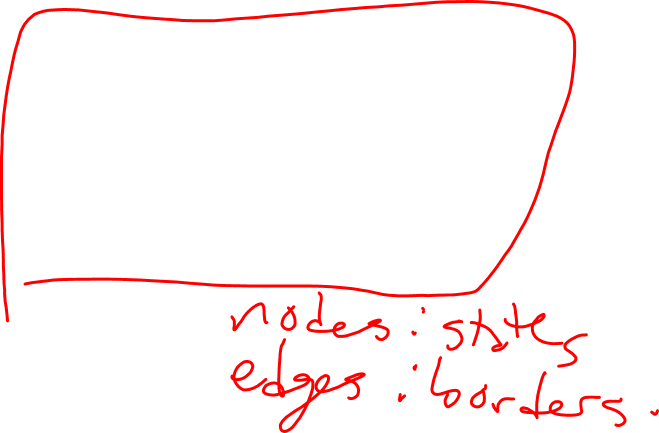 nodes : states
edges : borders.